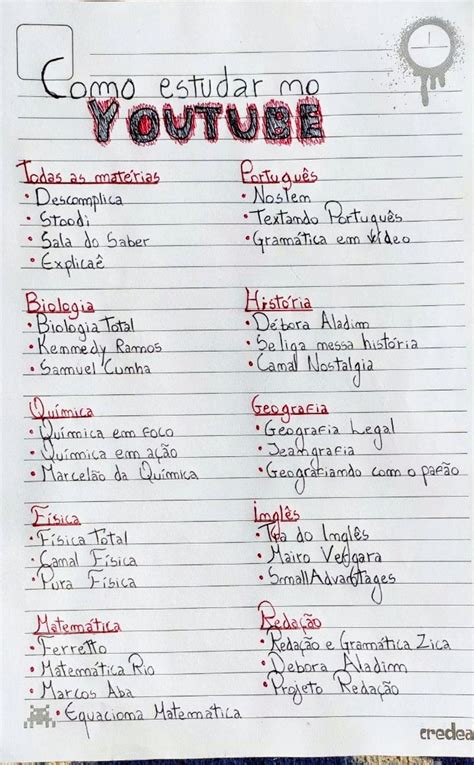 Como estudar no
YOUTUBE
Todas as matérias
• Descomplica
• Stoodi
• Sala do Saber
• Explicaê
Português
• Noslem
• Textando Português
• Gramática em vídeo
Biologia
• Biologia Total
• Kennedy Ramos
• Samuel Cunha
História
• Débora Aladim
• Se liga nessa história
• Canal Nostalgia
Química
• Química em foco
• Química em ação
• Marcelão da Química
Geografia
• Geografia Legal
• Jeangrafia
• Geografiando com o pafão
Física
• Física Total
• Canal Física
• Pura Física
Inglês
• Tia do Inglês
• Mairo Vergara
• SmallAdvantages
Matemática
• Ferretto
• Matemática Rio
• Marcos Aba
• Equaciona Matemática
Redação
• Redação e Gramática Zica
• Debora Aladim
• Projeto Redação
credea